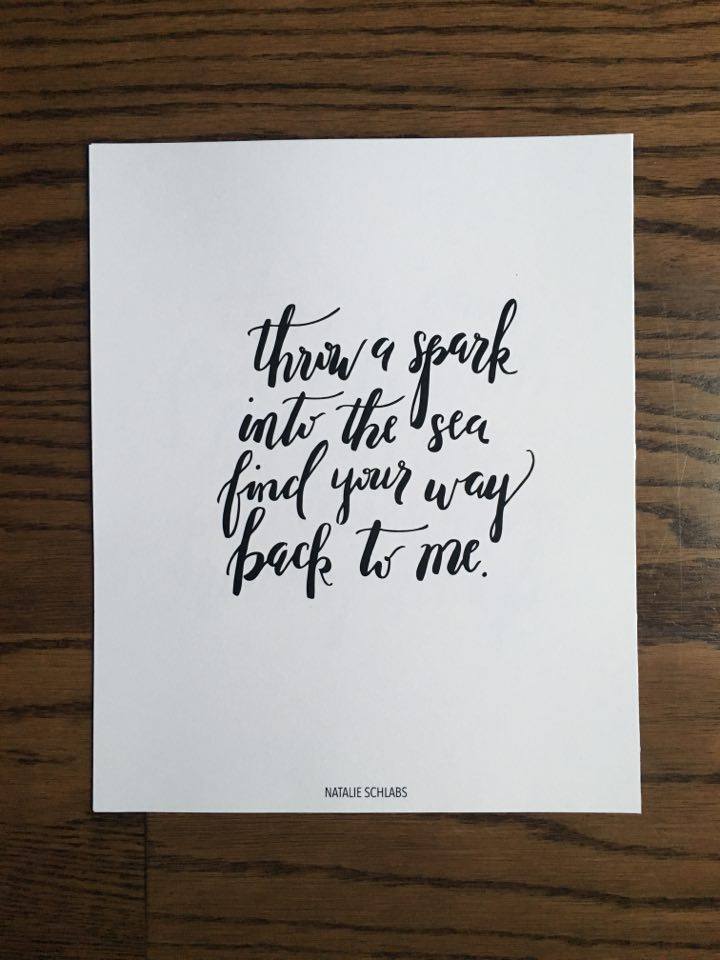 throw a spark
into the sea
find your way
back to me.
NATALIE SCHLABS